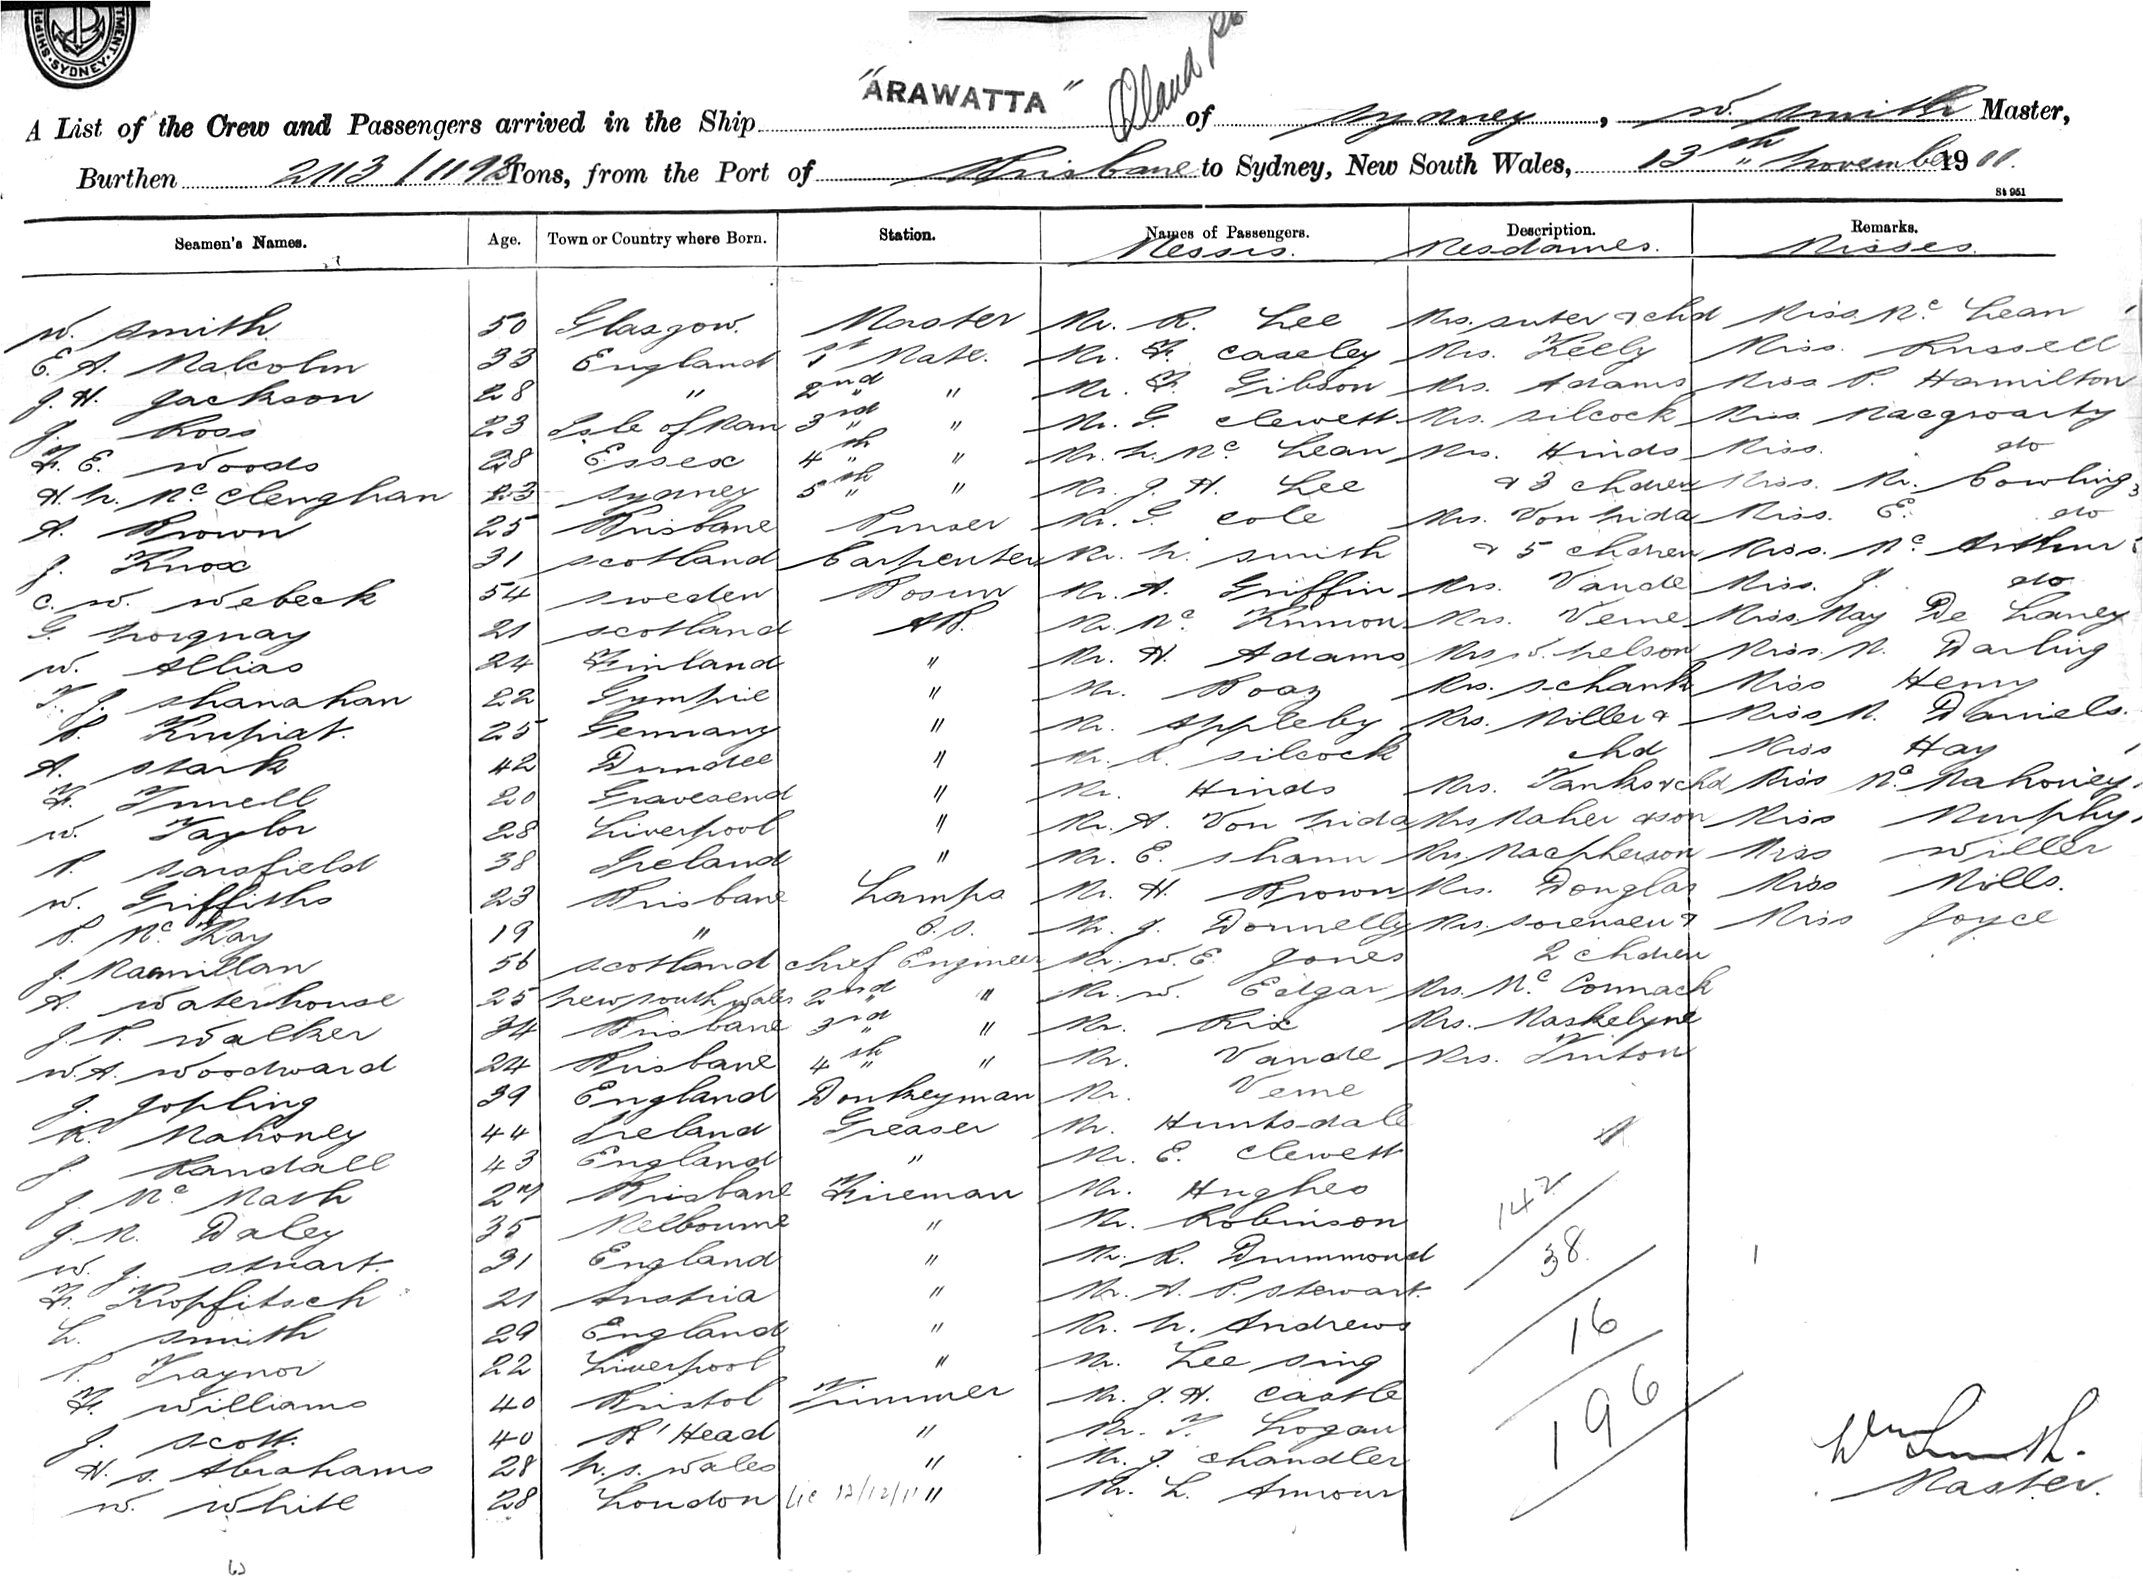 SYDNEY
"ARAWATTA"
A List of the Crew and Passengers arrived in the Ship of Sydney, W. Smith Master,
Burthen 2113/1193 Tons, from the Port of Brisbane to Sydney, New South Wales, 13th November 1911.
St 951
Seamen's Names. Age. Town or Country where Born. Station. Names of Passengers. Description. Remarks.
Messrs. Mesdames. Misses.
W. Smith 50 Glasgow. Master Mr. R. Lee Mrs. Suter & chd Miss Mc Lean
E. A. Malcolm 33 England 1st Mate. Mr. F. Caseley Mrs. Keely Miss. Russell
J. H. Jackson 28 " 2nd " Mr. F. Gibson Mrs. Adams Miss P. Hamilton
J. Ross 23 Isle of Man 3rd " Mr. G. Clewett Mrs. Silcock Miss. Macgroarty
F. E. Woods 28 Essex 4th " Mr. N. Mc Lean Mrs. Hinds Miss. do
H. N. Mc Clenghan 23 Sydney 5th " Mr. J. H. Lee & 3 chdren Miss. M. Cowling
A. Brown 25 Brisbane Purser Mr. G. Cole Mrs. Von Nida Miss. E. do
J. Knox 31 Scotland Carpenter Mr. N. Smith & 5 chdren Miss. Mc Arthur
C. W. Webeck 54 Sweden Bosun Mr. A. Griffin Mrs. Vande Miss. J. do
G. Norquay 21 Scotland AB. Mr. Mc Kinnon Mrs. Verne Miss May De Laney
W. Allias 24 Finland " Mr. H. Adams Mrs W. Nelson Miss. M. Darling
T. J. Shanahan 22 Gympie " Mr. Boaz Mrs. Schank Miss Henry
C. Kupiat. 25 Germany " Mr. Appleby Mrs. Miller & Miss M. Daniels.
A. Stark 42 Dundee " Mr. R. Silcock chd Miss Hay
F. Tunell 20 Gravesend " Mr. Hinds Mrs. Tanks & chd Miss Mc Mahoney
W. Taylor 28 Liverpool " Mr. A. Von Nida Mrs Maher & son Miss Murphy
P. Sarsfield 38 Ireland " Mr. E. Shann Mrs. Macpherson Miss Willer
W. Griffiths 23 Brisbane Lamps Mr. H. Brown Mrs. Douglas Miss Mills.
P. Mc Kay 19 " O.S. Mr. J. Donnelly Mrs. Sorensen & Miss Joyce
J. Macmillan 56 Scotland Chief Engineer Mr. W. E. Jones 2 chdren
A. Waterhouse 25 New South Wales 2nd " Mr. W. Edgar Mrs. Mc Cormack
J. P. Walker 34 Brisbane 3rd " Mr. Rix Mrs. Maskelyne
W. A. Woodward 24 Brisbane 4th " Mr. Vande Mrs. Tinton
J. Jopling 39 England Donkeyman Mr. Verne
R. Mahoney 44 Ireland Greaser Mr. Huntsdale
J. Randall 43 England " Mr. E. Clewett
J. Mc Math 27 Brisbane Fireman Mr. Hughes
J. M. Daley 35 Melbourne " Mr. Robinson
W. J. Stuart. 31 England " Mr. R. Drummond
F. Kropfitsch 21 Austria " Mr. A. P. Stewart.
L. Smith 29 England " Mr. N. Andrews
P. Traynor 22 Liverpool " Mr. Lee Sing
F. Williams 40 Bristol Trimmer Mr. J. H. Castle
J. Scott. 40 B'Head " Mr. T. Logan
H. S. Abrahams 28 N. S. Wales " Mr. J. Chandler
W. White 28 London Lic 12/12/11 " Mr. L. Armour
142
38
16
196
Wm Smith.
Master.